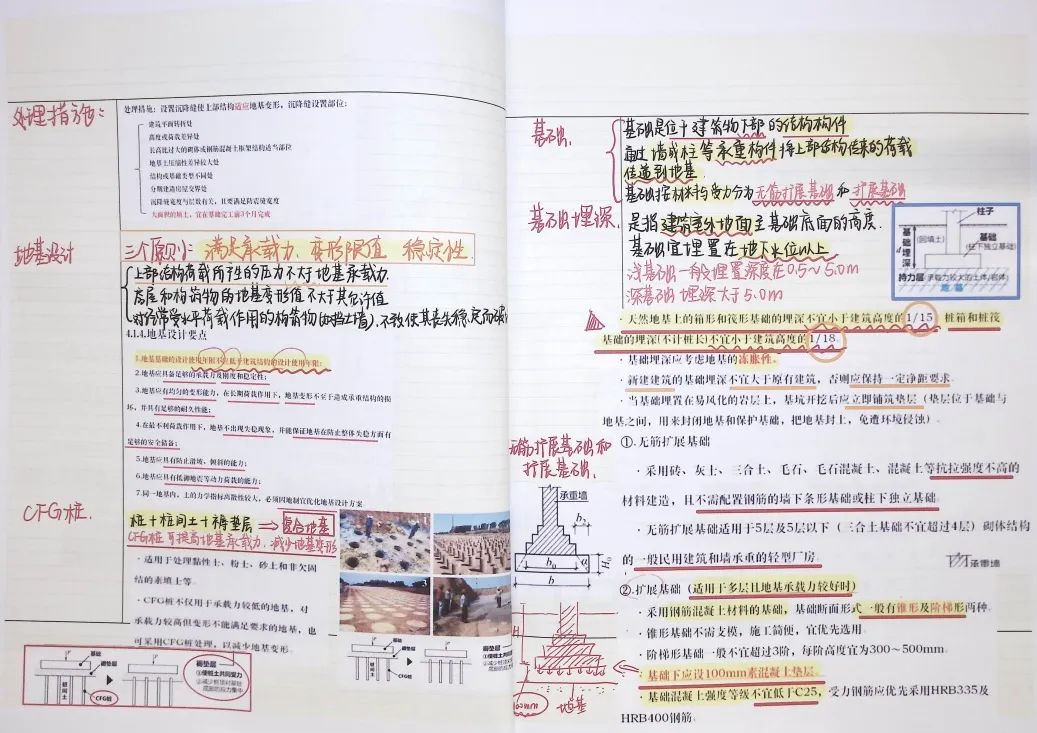 处理措施:
处理措施：设置沉降缝使上部结构适应地基变形，沉降缝设置部位：
建筑平面转折处
高度或荷载差异处
长高比过大的砌体或钢筋混凝土框架结构适当部位
地基土压缩性差异较大处
结构或基础类型不同处
分期建造房屋交界处
沉降缝宽度与层数有关，且要满足防震缝宽度
大面积的填土，宜在基础完工前3个月完成
地基设计
三个原则: 满足承载力、变形限值 稳定性.
上部结构荷载所产生的压力不大于地基承载力.
房屋和构筑物的地基变形值不大于其允许值
对经常受水平荷载作用的构筑物(如挡土墙),不致使其丧失稳定而破
4.1.4.地基设计要点
1.地基基础的设计使用年限不应低于建筑结构的设计使用年限;
2.地基应具备足够的承载力及刚度和稳定性;
3.地基应有均匀的变形能力，在长期荷载作用下，地基变形不至于造成承重结构的损
坏，并具有足够的耐久性能;
4.在最不利荷载作用下，地基不出现失稳现象，并能保证地基在防止整体失稳方面有
足够的安全储备;
5.地基应具有防止滑坡、倾斜的能力;
6.地基应具有抵御地震等动力荷载的能力;
7.同一地基内，土的力学指标离散性较大，必须因地制宜优化地基设计方案
CFG桩.
桩+桩间土+褥垫层 ⇒ 复合地基
CFG桩可提高地基承载力.减少地基变形
· 适用于处理黏性土、粉土、砂土和非欠固
结的素填土等
· CFG桩不仅用于承载力较低的地基，对
承载力较高但变形不能满足要求的地基，也
可采用CFG桩处理，以减少地基变形
基础
褥垫层
桩间土
CFG桩
褥垫层
①使桩土共同受力
②减少桩顶对基础
底面的应力集中
基础
褥垫层
桩间土
CFG桩
基础.
基础是位于建筑物下部的结构构件
通过墙或柱等承重构件将上部结构传来的荷载
传递到地基
基础按材料与受力分为无筋扩展基础和扩展基础
基础埋深.
是指建筑室外地面至基础底面的高度.
基础宜埋置在地下水位以上
浅基础一般埋置深度在0.5~5.0m
深基础 埋深大于5.0m
柱子
(回填土)
基础
(柱下独立基础)
基础埋深
持力层
(承载力较大的土体/岩体)
地基
· 天然地基上的箱形和筏形基础的埋深不宜小于建筑高度的1/15 桩箱和桩筏
基础的埋深(不计桩长)不宜小于建筑高度的1/18.
· 基础埋深应考虑地基的冻胀性。
· 新建建筑的基础埋深不宜大于原有建筑，否则应保持一定净距要求
· 当基础埋置在易风化的岩层上，基坑开挖后应立即铺筑垫层 (垫层位于基础与
地基之间，用来封闭地基和保护基础，把地基封上，免遭环境侵蚀)
无筋扩展基础和
扩展基础.
①.无筋扩展基础
· 采用砖、灰土、三合土、毛石、毛石混凝土、混凝土等抗拉强度不高的
材料建造，且不需配置钢筋的墙下条形基础或柱下独立基础
· 无筋扩展基础适用于5层及5层以下 (三合土基础不宜超过4层) 砌体结构
的一般民用建筑和墙承重的轻型厂房
承重墙
b₂
h₀
α
H₀
b
承重墙
②.扩展基础 (适用于多层且地基承载力较好时)
· 采用钢筋混凝土材料的基础，基础断面形式一般有锥形及阶梯形两种
· 锥形基础不需支模，施工简便，宜优先选用
· 阶梯形基础一般不宜超过3阶，每阶高度宜为300～500mm。
· 基础下应设100mm素混凝土垫层。
· 基础混凝土强度等级不宜低于C25，受力钢筋应优先采用HRB335及
HRB400钢筋
H
地基